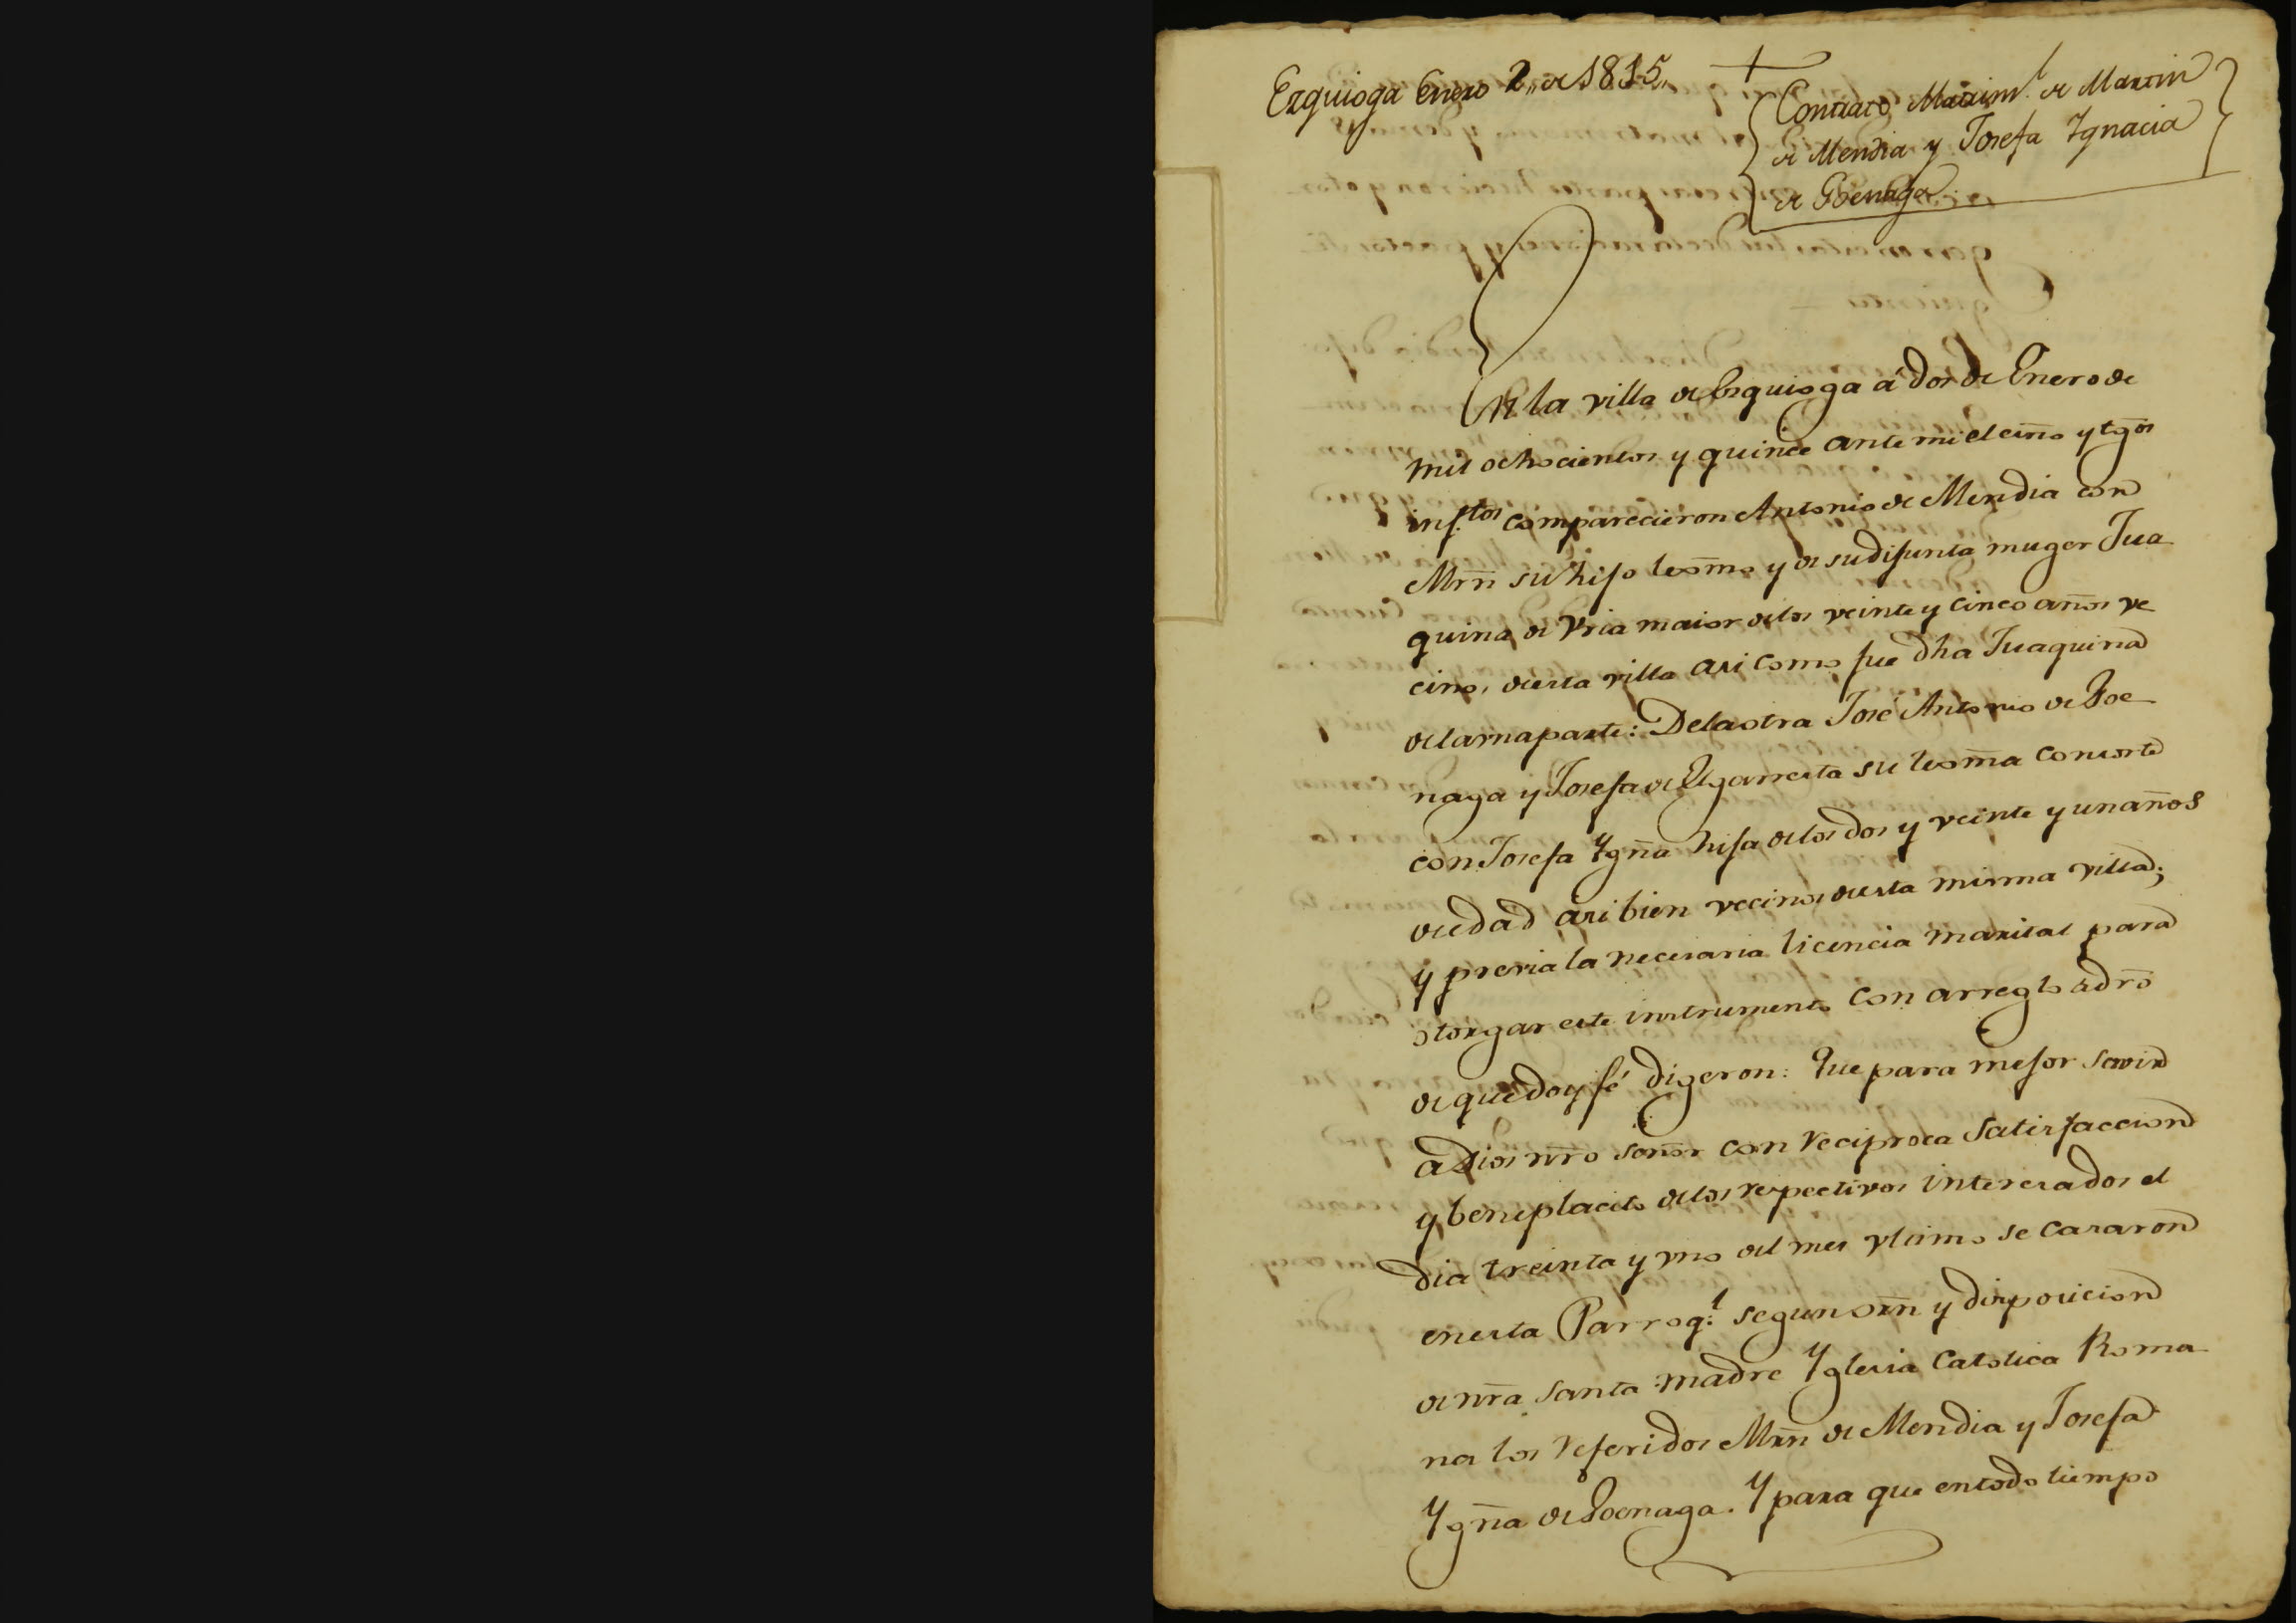 Ezquioga Enero 2,, de 1815,,
Contrato Matrim.l de Martin
de Mendia y Josefa Ygnacia
de Goenaga
En la villa de Esquioga á dos de Enero de
mil ochocientos y quince ante mi el essno y tgos
insf.tos comparecieron Antonio de Mendia con
Mrn su hijo lexmo y de su difunta muger Jua
quina de Vria maior de los veinte y cinco años ve
cinos de esta villa asi como fue dha Juaquina
de la rna parte: De la otra José Antonio de Goe
naga y Josefa de Elgarresta su lexma consorte
con Josefa Ygña hija de los dos y veinte y un años
de edad asi bien vecinos de esta misma villa;
y previa la necesaria licencia marital para
otorgar este instrumento con arreglo a dro
de que doy fé digeron: Que para mejor servir
a Dios nro señor con reciproca satisfaccion
y beneplacito de los respectivos interesados el
dia treinta y vno del mes vltimo se casaron
en esta Parroq.l segun orn y disposicion
de nra santa madre Yglesia Catolica Roma
na los referidos Mrn de Mendia y Josefa
Ygña de Goenaga. Y para que en todo tiempo